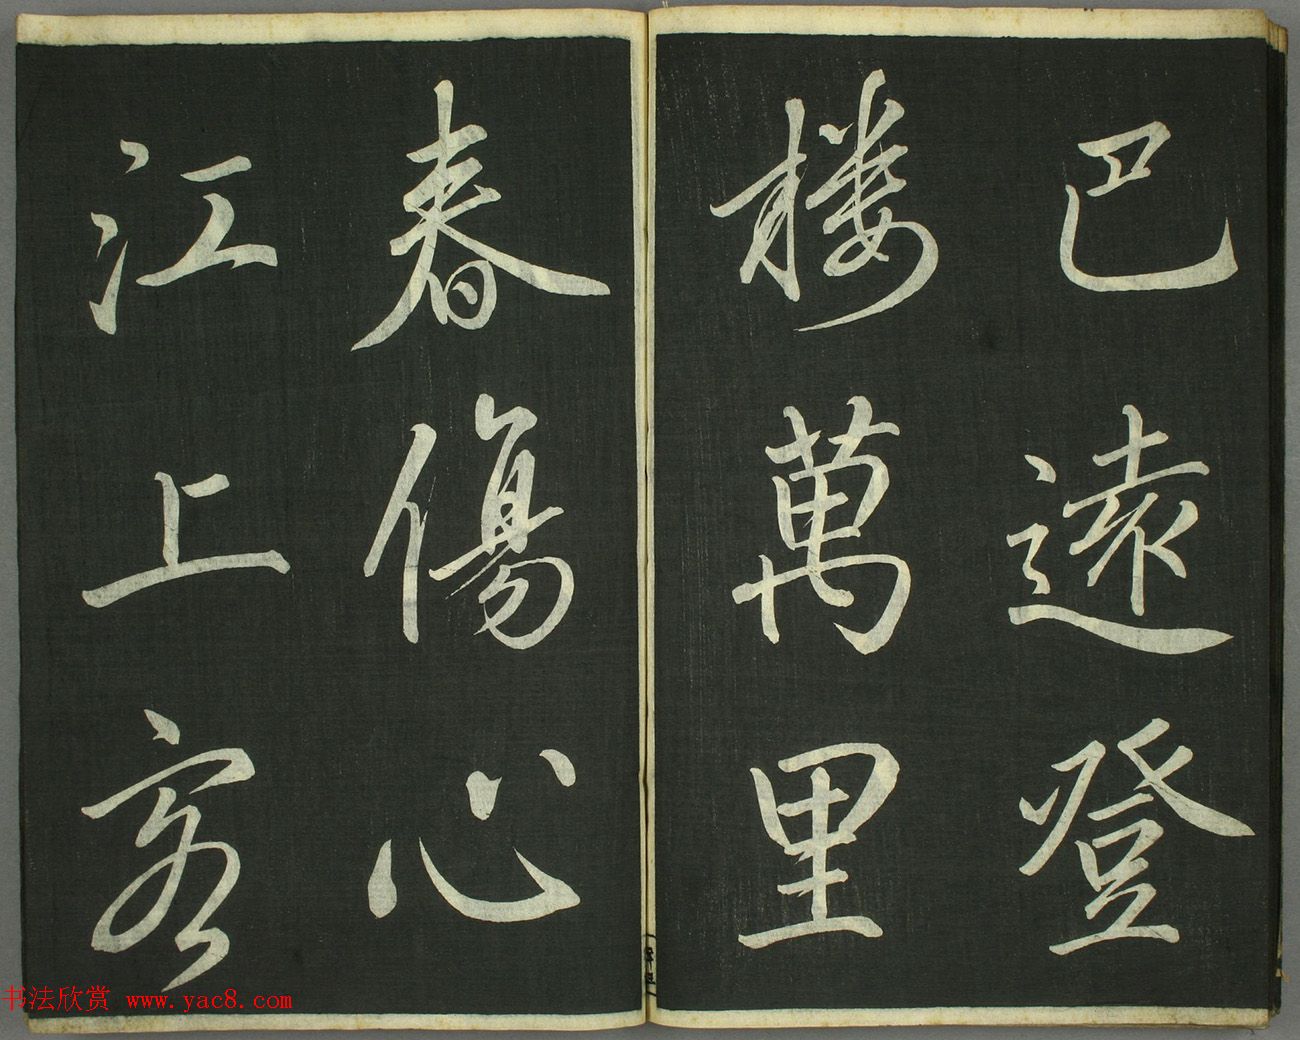 已遠登
樓萬里
春傷心
江上客
书法欣赏 www.yac8.com